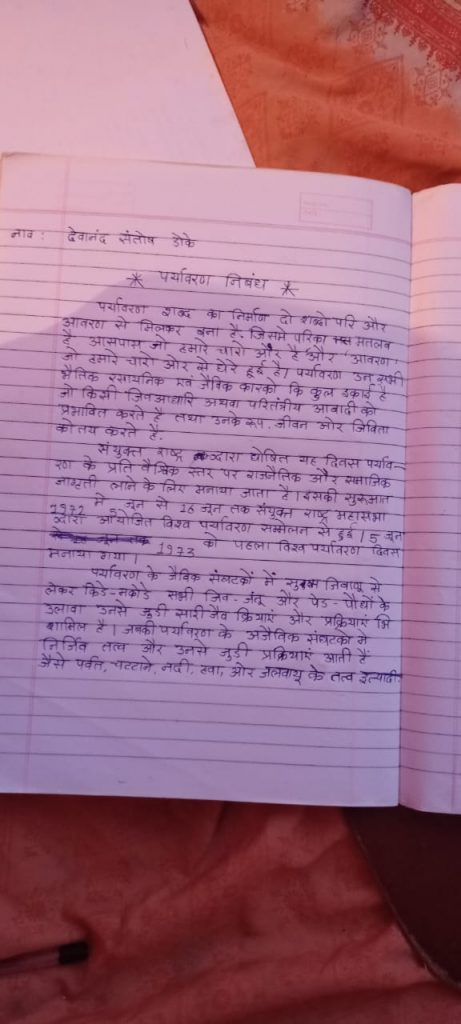 नाव : देवानंद संतोष डोके
* पर्यावरण निबंध *
पर्यावरण शब्द का निर्माण दो शब्दो परि और
आवरण से मिलकर बना है. जिसमे परिका मतलब
है आसपास जो हमारे चारो और है और 'आवरण'
जो हमारे चारो ओर से घेरे हुई है। पर्यावरण उन सभी
भैतिक रसायनिक एवं जैविक कारको कि कुल इकाई है
जो किसी जिवआधारि अथवा परितंत्रीय आबादी को
प्रभावित करते है तथा उनके रूप, जीवन और जिविता
को तय करते है.
संयुक्त राष्ट्र द्वारा घोषित यह दिवस पर्याव-
रण के प्रति वैश्विक स्तर पर राजनैतिक और समाजिक
जागृती लाने के लिए मनाया जाता है। इसकी सुरूआत
1972 मे 5 जून से 16 जून तक संयुक्त राष्ट्र महासभा
द्वारा आयोजित विश्व पर्यावरण सम्मेलन से हुई। 5 जून
1973 को पहला विश्व पर्यावरण दिवस
मनाया गया।
पर्यावरण के जैविक संघटकों में सुक्ष्म जिवाणू से
लेकर किडे-मकोडे सभी जिव-जंतू और पेड-पौधों के
उलावा उनसे जूडी सारी जैव क्रियाएं और प्रक्रियाएं भि
शामिल है। जबकी पर्यावरण के अजैविक संघटको मे
निर्जिव तत्व और उनसे जुडी प्रक्रियाएं आती है
जैसे पर्वत, चट्टाने, नदी, हवा, और जलवायू के तत्व इत्यादी.